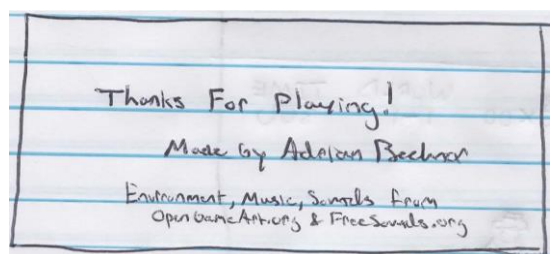 Thanks For Playing!
Made by Adrian
Environment, Music, Sounds from
OpenGameArt.org & FreeSounds.org